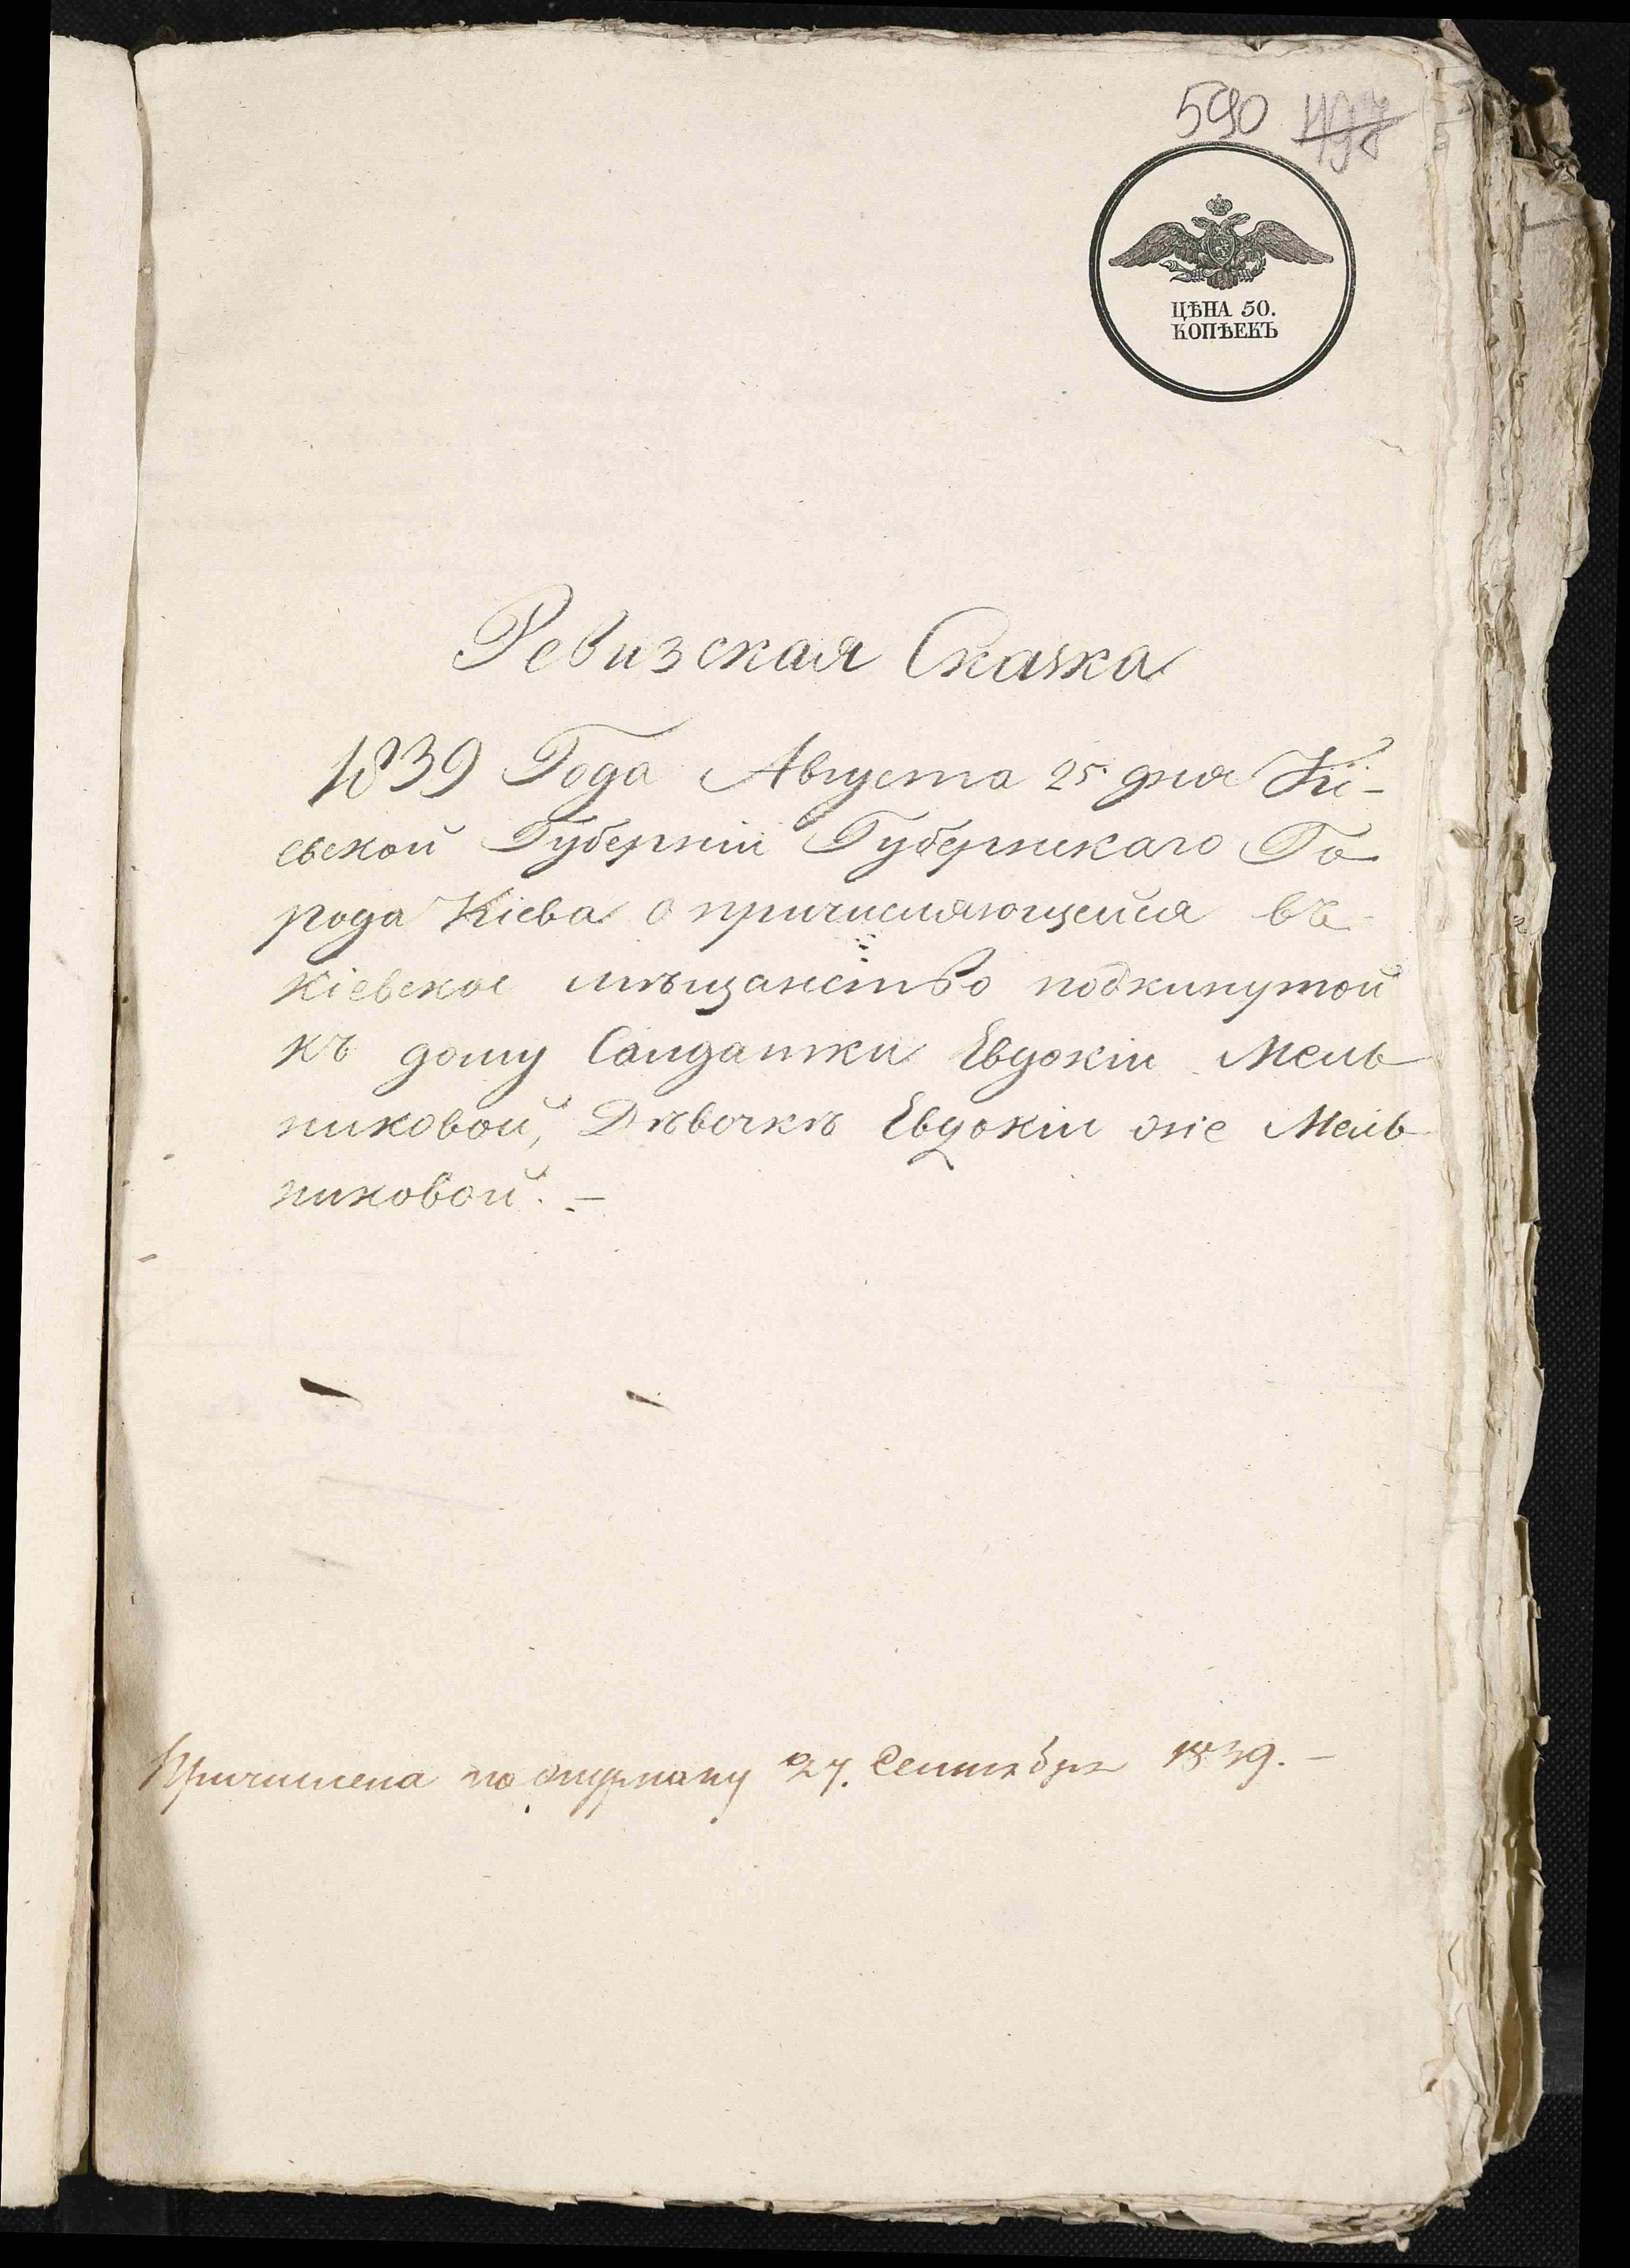 590 497
ЦѢНА 50.
КОПѢЕКЪ
Ревизская Сказка
1839 Года Августа 25 дня Кі-
евской Губерніи Губернскаго Го
рода Кіева о причисляющейся въ
кіевское мѣщанство подкинутой
къ дому Салдатки Евдокіи Мель
никовой, Дѣвочкѣ Евдокіи оне Мель
никовой. -
Причислена по 27. Сентября 1839. -